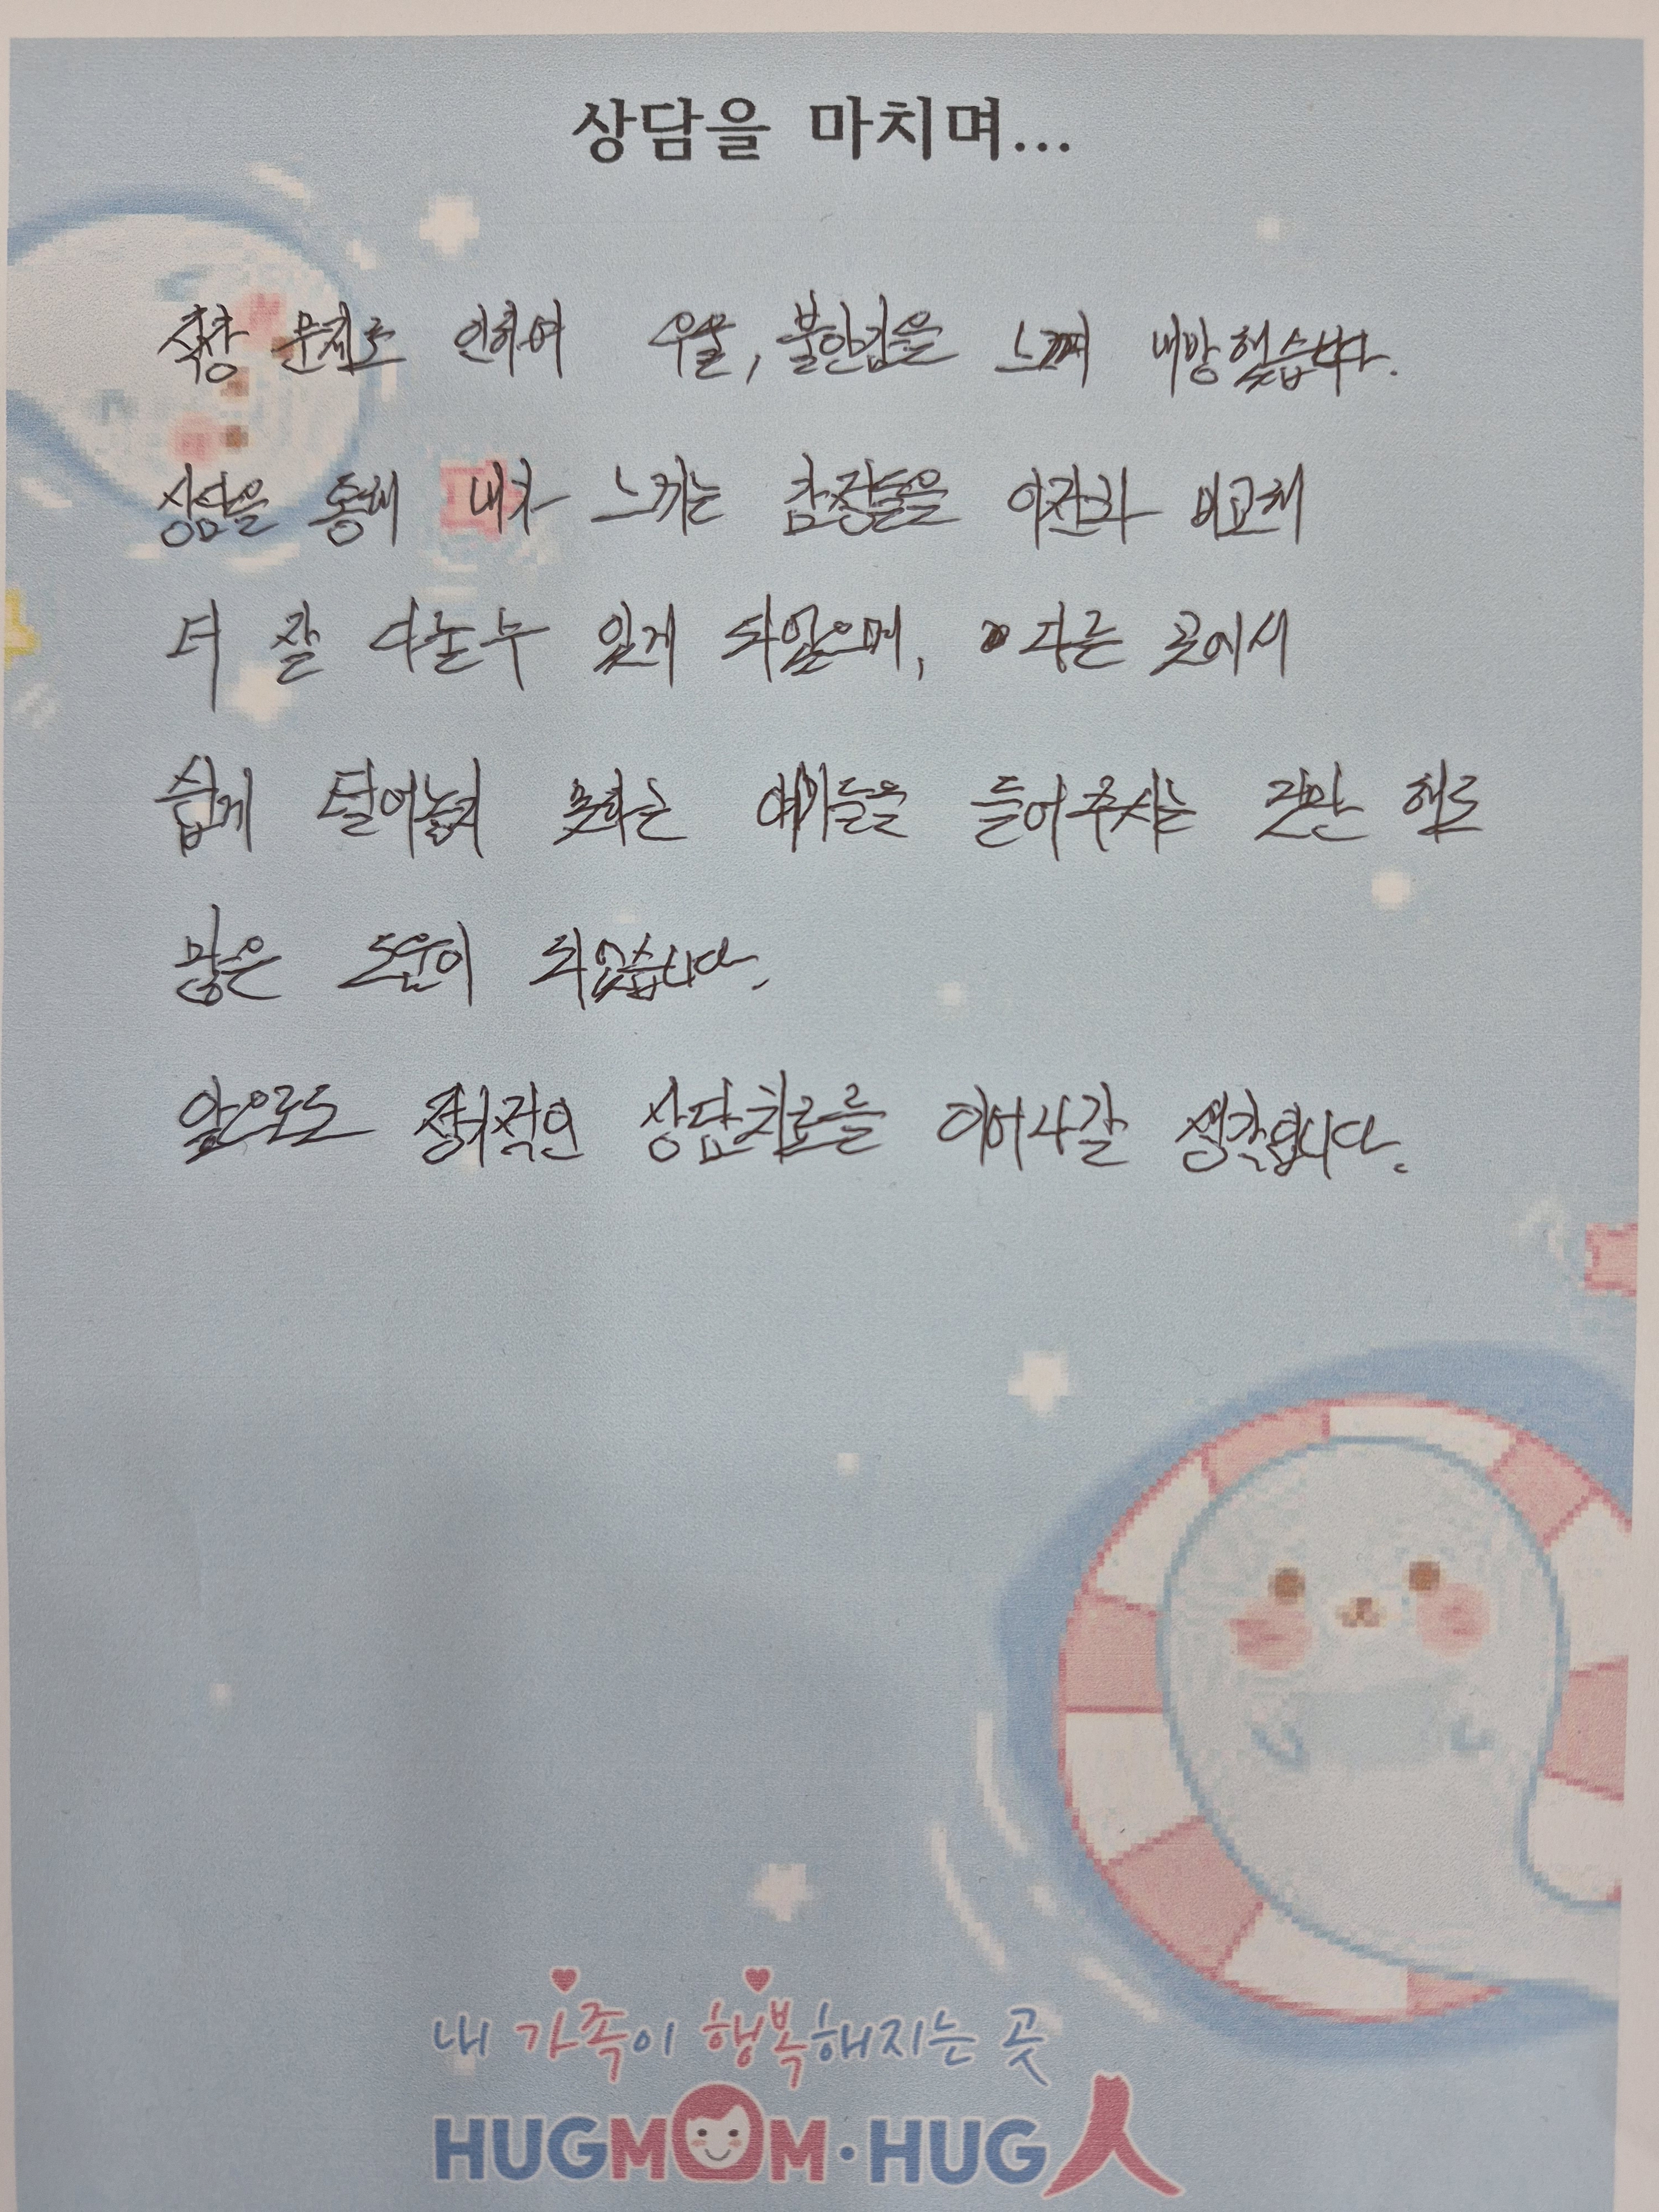 상담을 마치며...
직장 문제로 인하여 우울, 불안감을 느껴 내방했습니다.
상담을 통해 내가 느끼는 감정들을 이전과 비교해
더 잘 다눌 수 있게 되었으며, 다른 곳에서
쉽게 털어놓지 못하는 얘기들을 들어주시는 것만 해도
많은 도움이 되었습니다.
앞으로도 정기적인 상담치료를 이어나갈 생각입니다.
내 가족이 행복해지는 곳
HUGMOM·HUG人